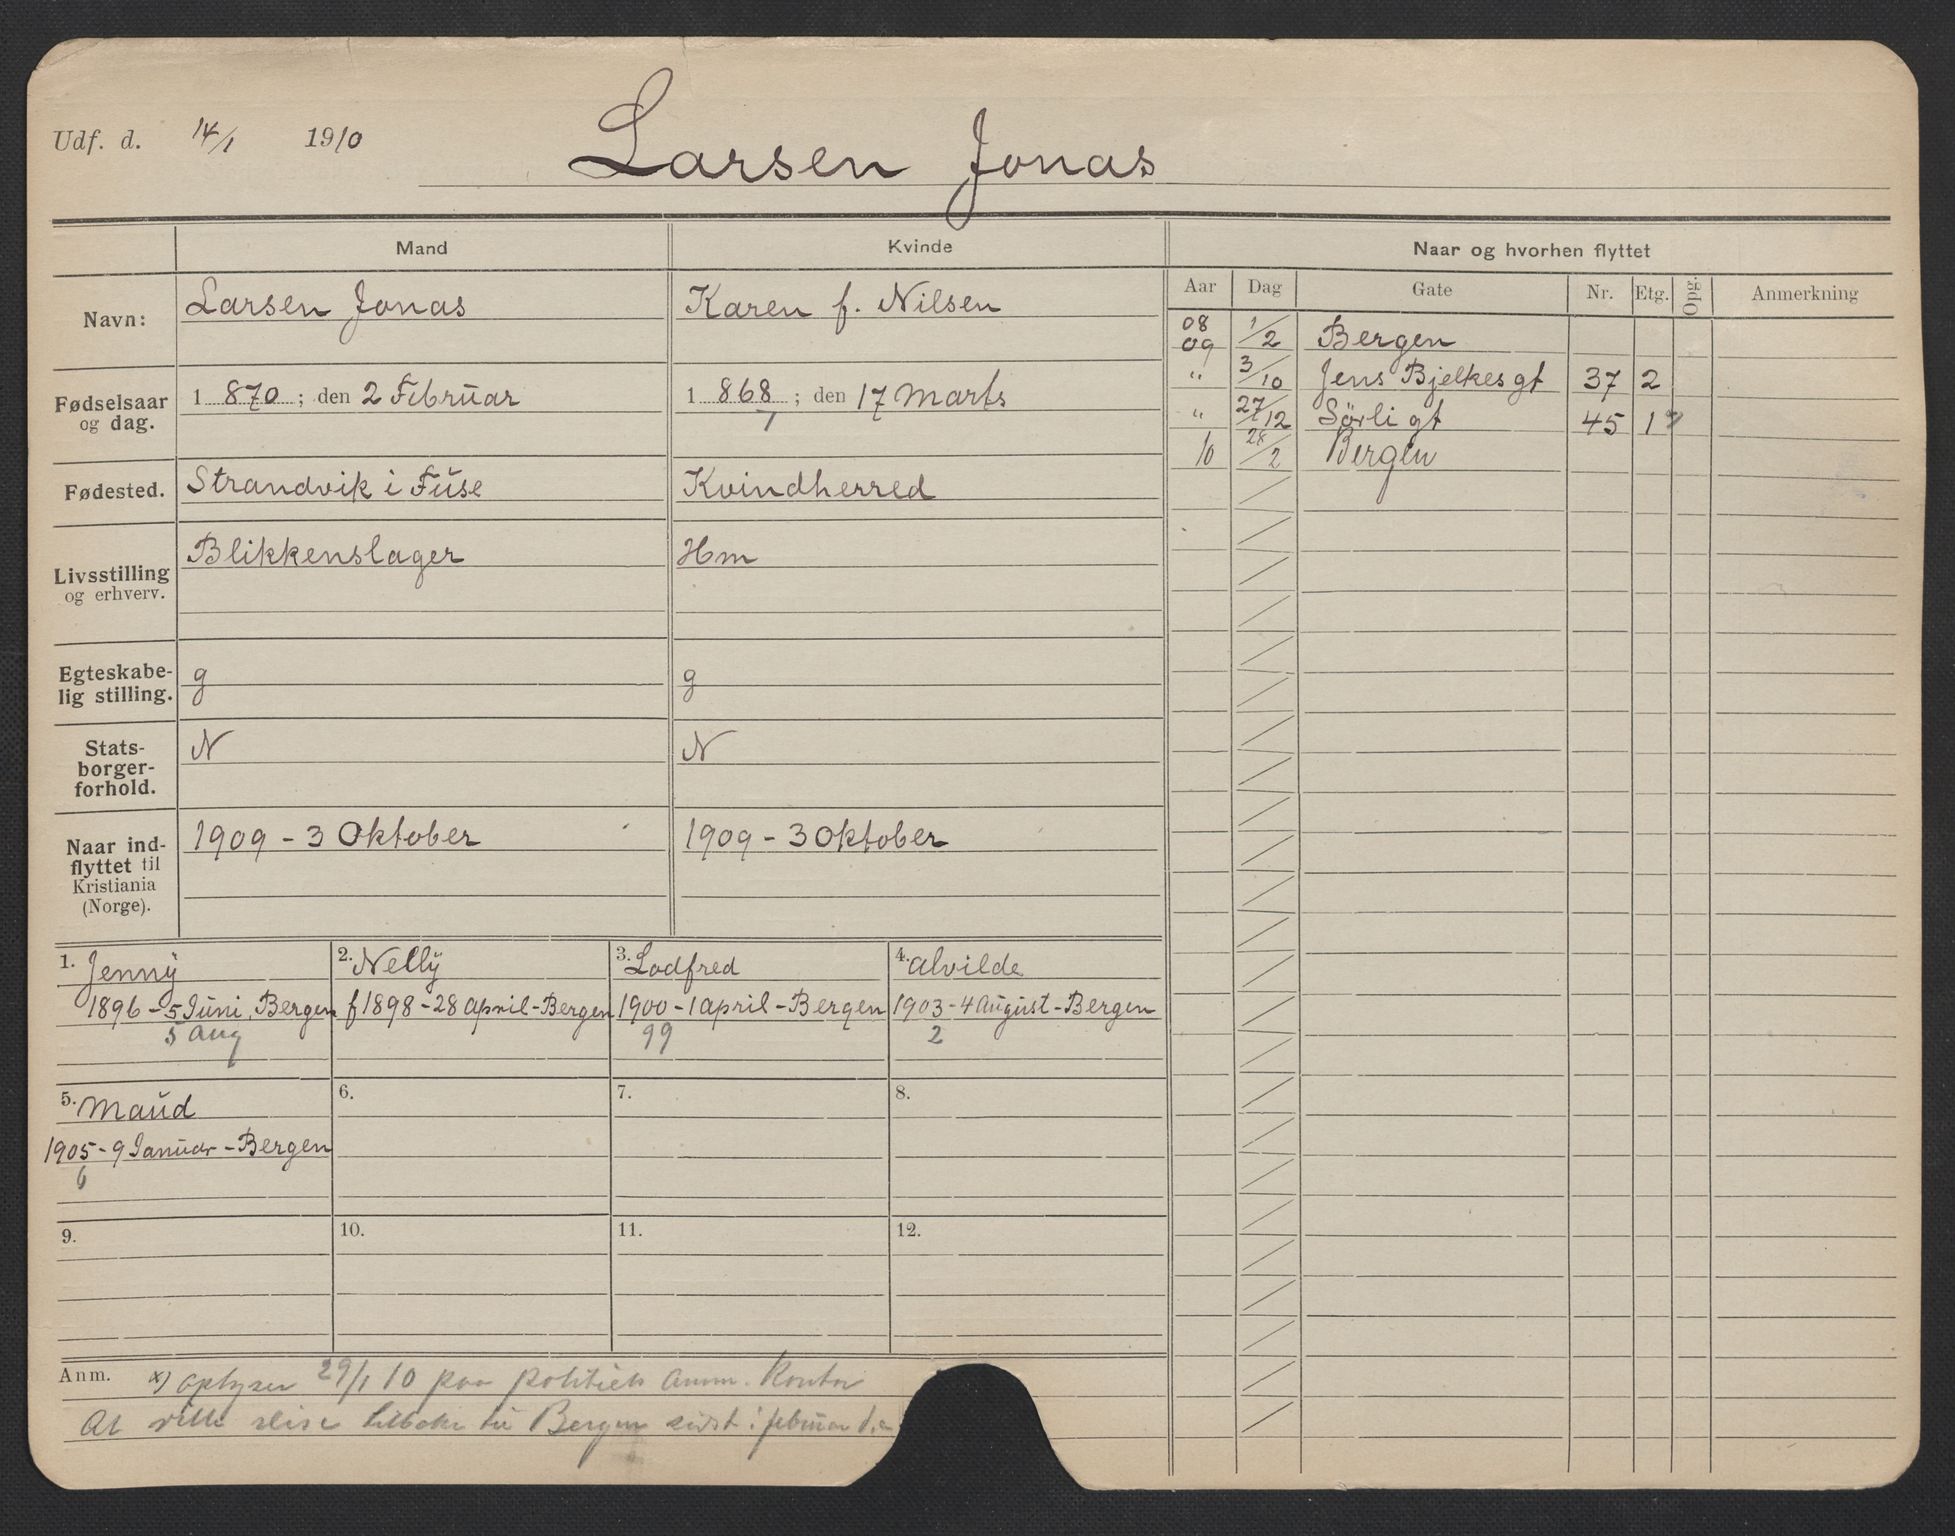 Udf. d. 14/1 1910 Larsen Jonas
Mand Kvinde Naar og hvorhen flyttet
Navn: Larsen Jonas Karen f. Nilsen
Fødselsaar og dag. 1 870 ; den 2 Februar 1 868 ; den 17 Marts
7
Fødested. Strandvik i Fuse Kvindherred
Livsstilling og erhverv. Blikkenslager Hm
Egteskabe-
lig stilling. g g
Stats-
borger-
forhold. N N
Naar ind-
flyttet til
Kristiania
(Norge). 1909 - 3 Oktober 1909 - 3 Oktober
Aar Dag Gate Nr. Etg. Opg. Anmerkning
08
09 1/2 Bergen
" 3/10 Jens Bjelkes gt 37 2
" 27/12 Sørli gt 45 1 x)
10 28/2 Bergen
1. Jenny 2. Nelly 3. Lodfred 4. Alvilde
1896 - 5 Juni, Bergen f 1898 - 28 April - Bergen 1900 - 1 April - Bergen 1903 - 4 August - Bergen
5 Aug 99 2
5. Maud 6. 7. 8.
1905 - 9 Januar - Bergen
6
9. 10. 11. 12.
Anm. x) oplyser 29/1 10 paa politiets anm. Kontor
At ville reise tilbake til Bergen sidst i februar d.a